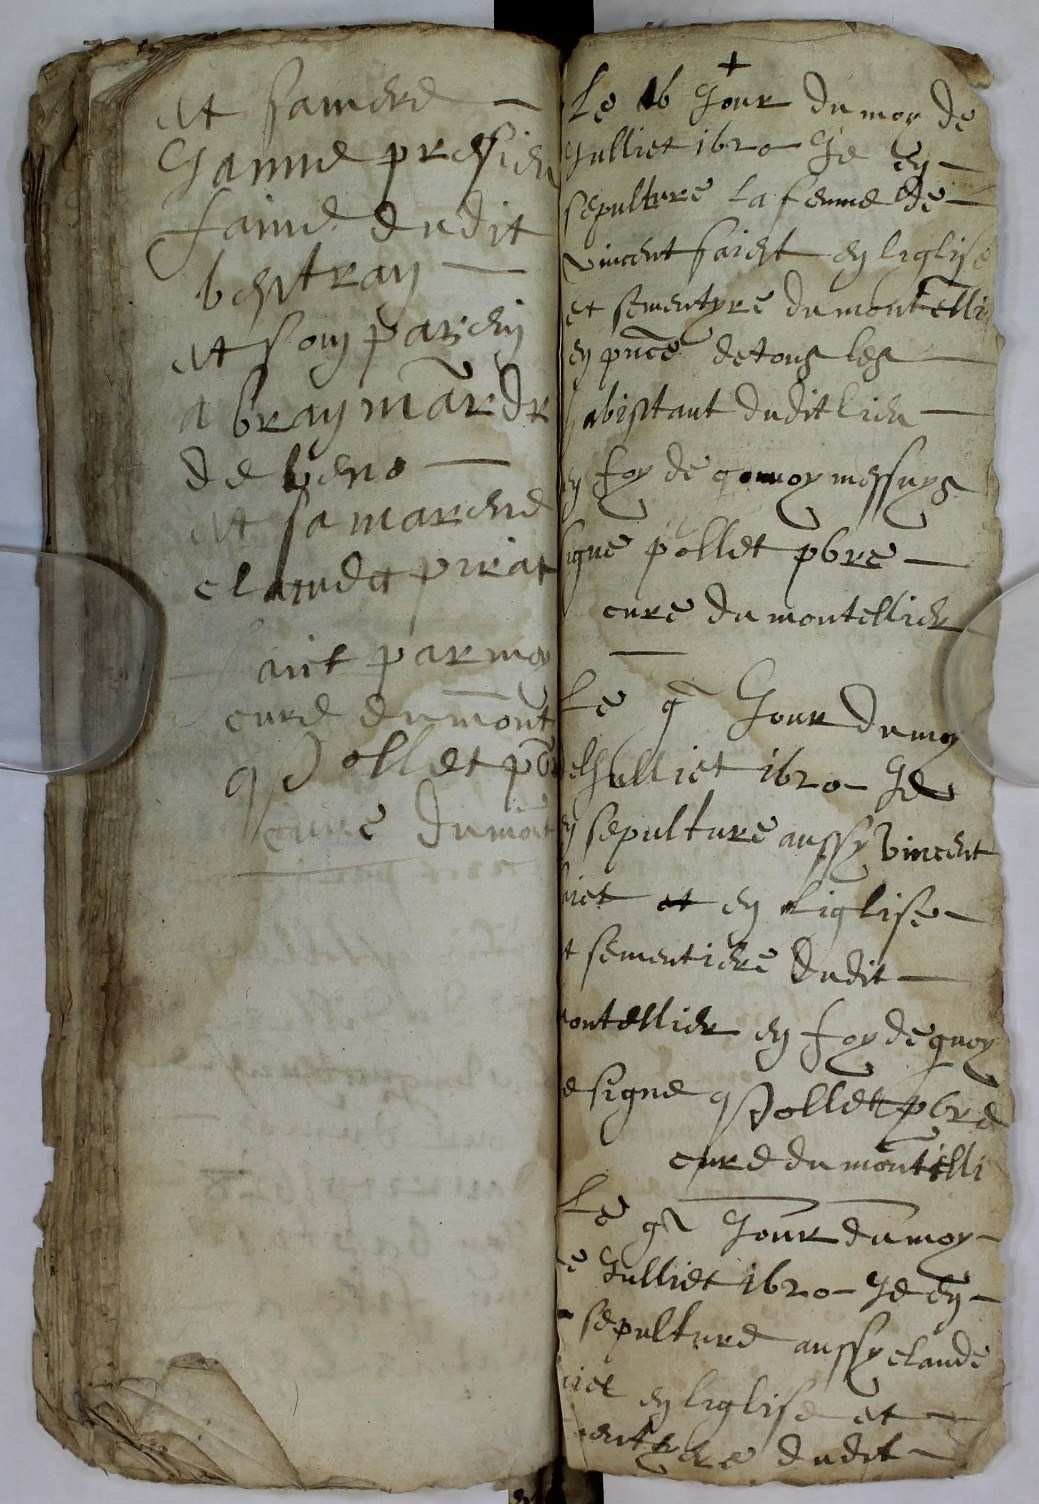 et samere
Janne presieu
faime dudit
bertray
et son parein
abraym mardr
de beno
et sa mareine
claudet pirat
faict par moy
cure du mont
Pollet pb
cure du mont
Le 16 Jour du moy de
Julliet 1620 Je en
sepulture la femme de
vincent faict en liglise
et sementyre du montelli
en pnce de tous les
habistant dudit lieu
en foy de quoy me suys
signe pollet pbre
cure du montellier
Le 9 Jour du moy
Julliet 1620 Je
en sepulture aussy vincent
et en liglise
sementiere dudit
ontellier en foy de quoy
e signe Pollet pbre
cure du montelli
Le Jour du moy
e Julliet 1620 Je en
sepulture aussy claude
en liglise et
dudit